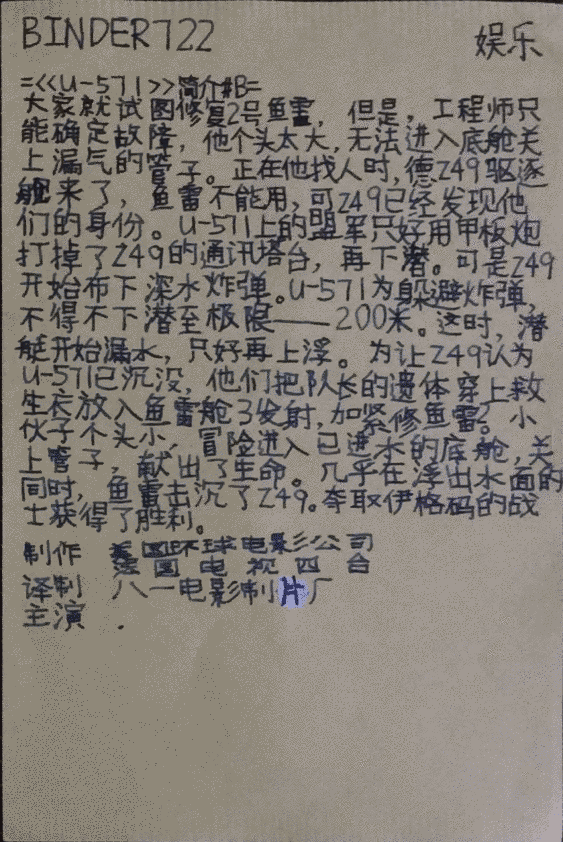 BINDER722 娱乐
=<<U-571>>简介#B=
大家就试图修复2号鱼雷，但是，工程师只
能确定故障，他个头太大，无法进入底舱关
上漏气的管子。正在他找人时，德Z49驱逐
舰来了，鱼雷不能用，可Z49已经发现他
们的身份。U-571上的盟军只好用甲板炮
打掉了Z49的通讯塔台，再下潜。可是Z49
开始布下深水炸弹。U-571为躲避炸弹，
不得不下潜至极限——200米。这时，潜
艇开始漏水，只好再上浮。为让Z49认为
U-571已沉没，他们把队长的遗体穿上救
生衣放入鱼雷舱3发射，加紧修鱼雷。小
伙子个头小，冒险进入已进水的底舱，关
上管子，献出了生命。几乎在浮出水面的
同时，鱼雷击沉了Z49。夺取伊格码的战
士获得了胜利。
制作 美国环球电影公司
法国电视四台
译制 八一电影制片厂
主演 .